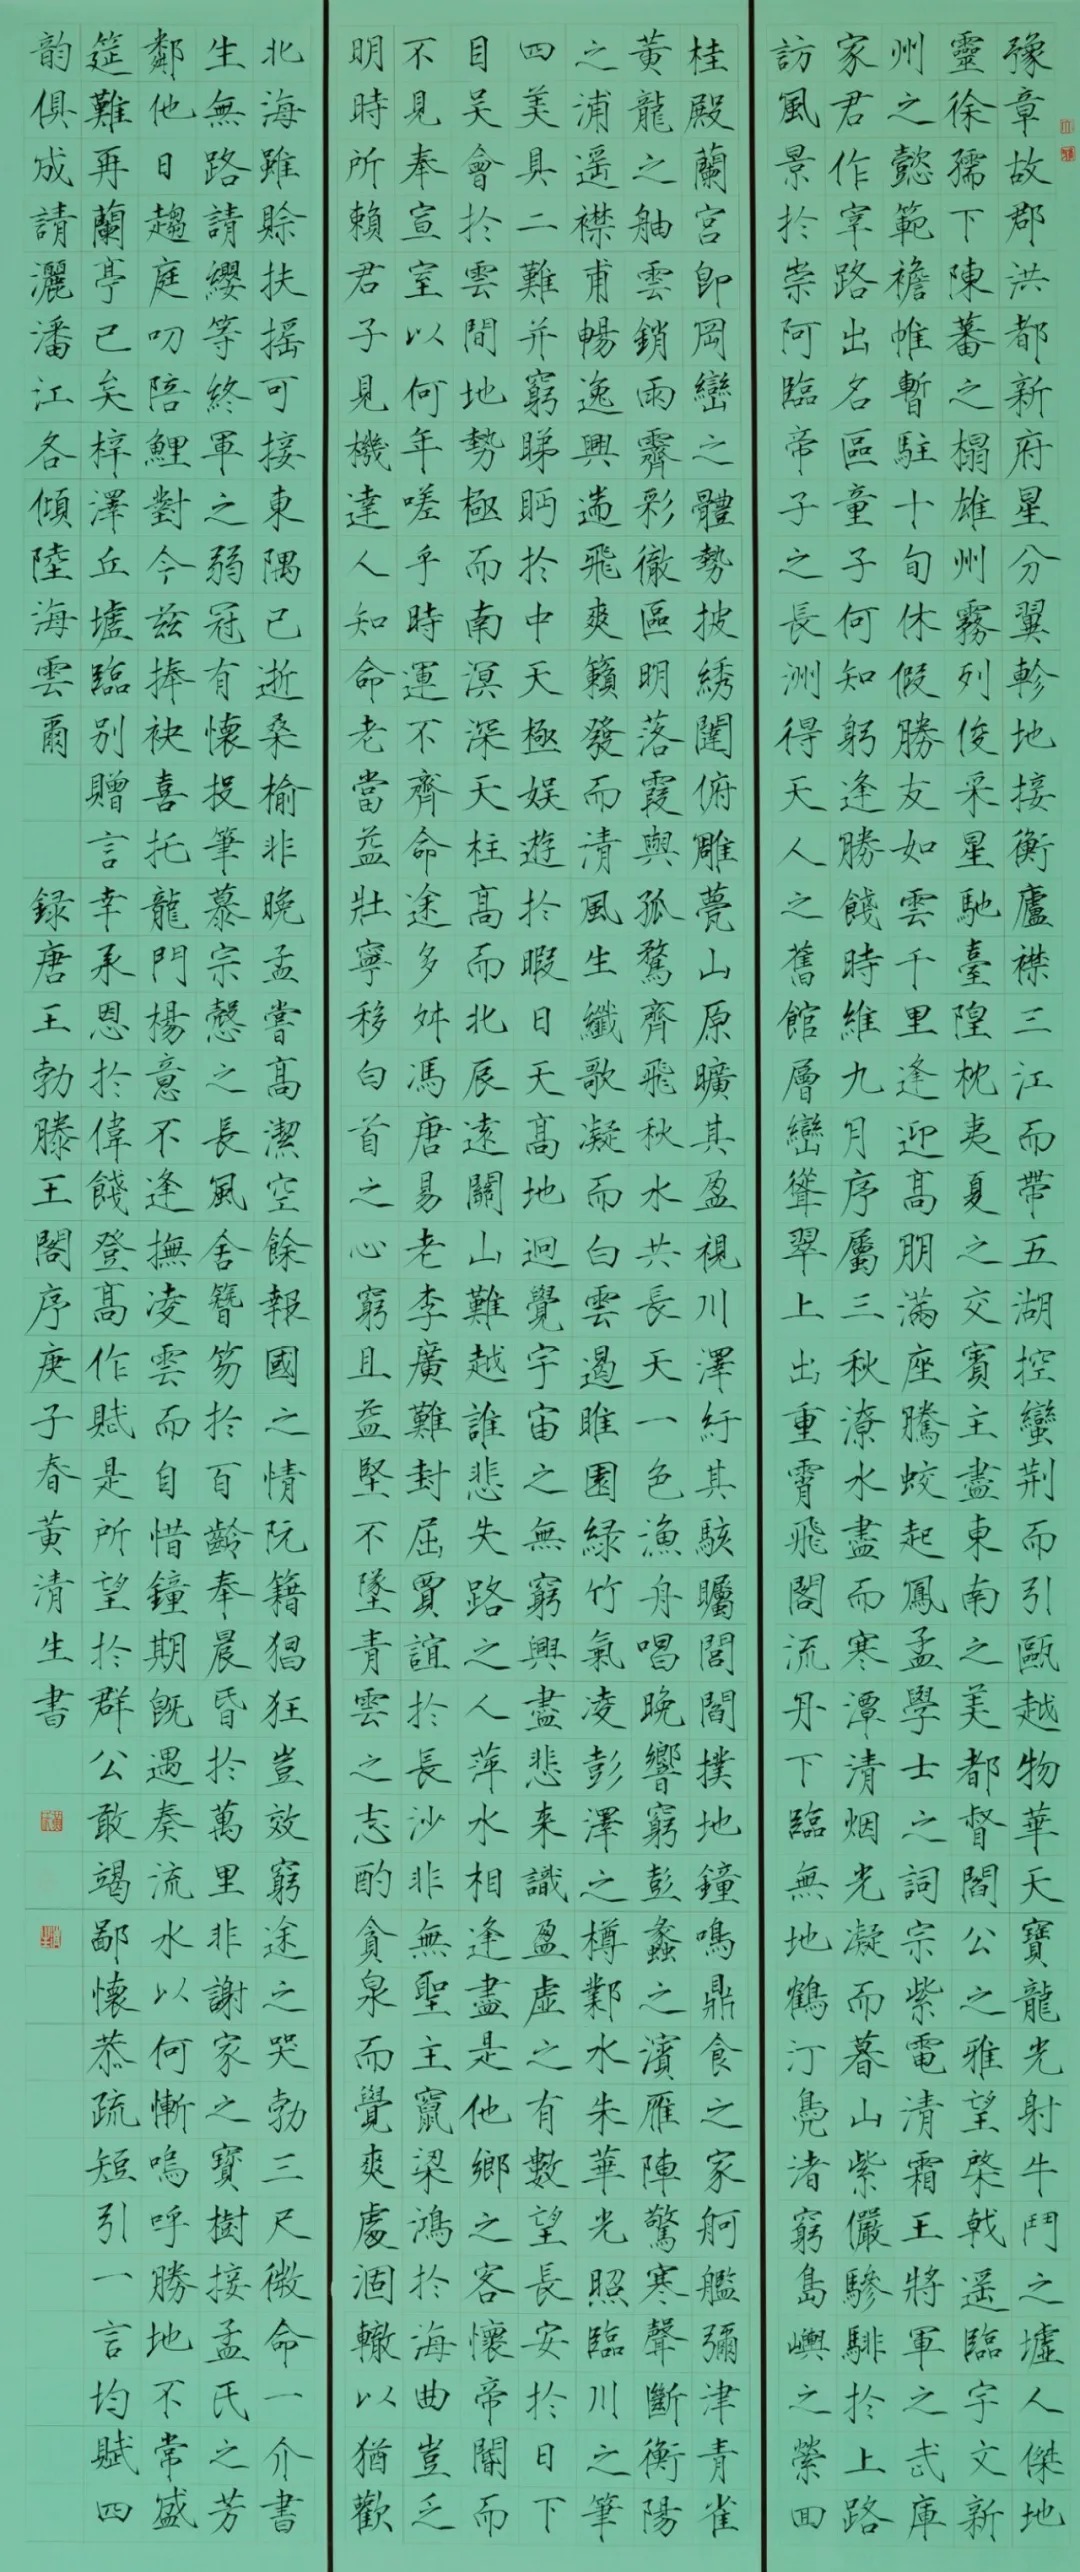 豫章故郡洪都新府星分翼軫地接衡廬襟三江而帶五湖控蠻荆而引甌越物華天寶龍光射牛鬥之墟人傑地
靈徐孺下陳蕃之榻雄州霧列俊采星馳臺隍枕夷夏之交賓主盡東南之美都督閻公之雅望棨戟遥臨宇文新
州之懿範襜帷暫駐十旬休假勝友如雲千里逢迎高朋滿座騰蛟起鳳孟學士之詞宗紫電清霜王將軍之武庫
家君作宰路出名區童子何知躬逢勝餞時維九月序屬三秋潦水盡而寒潭清烟光凝而暮山紫儼驂騑於上路
訪風景於崇阿臨帝子之長洲得天人之舊館層巒聳翠上出重霄飛閣流丹下臨無地鶴汀鳧渚窮島嶼之縈回
桂殿蘭宮即岡巒之體勢披綉闥俯雕甍山原曠其盈視川澤紆其駭矚閭閻撲地鐘鳴鼎食之家舸艦彌津青雀
黃龍之舳雲銷雨霽彩徹區明落霞與孤鶩齊飛秋水共長天一色漁舟唱晚響窮彭蠡之濱雁陣驚寒聲斷衡陽
之浦遥襟甫暢逸興遄飛爽籟發而清風生纖歌凝而白雲遏睢園緑竹氣凌彭澤之樽鄴水朱華光照臨川之筆
四美具二難并窮睇眄於中天極娛遊於暇日天高地迥覺宇宙之無窮興盡悲来識盈虛之有數望長安於日下
目吴會於雲間地勢極而南溟深天柱高而北辰遠關山難越誰悲失路之人萍水相逢盡是他鄉之客懷帝閽而
不見奉宣室以何年嗟乎時運不齊命途多舛馮唐易老李廣難封屈賈誼於長沙非無聖主竄梁鴻於海曲豈乏
明時所賴君子見機達人知命老當益壯寧移白首之心窮且益堅不墜青雲之志酌貪泉而覺爽處涸轍以猶歡
北海雖賒扶搖可接東隅已逝桑榆非晚孟嘗高潔空餘報國之情阮籍猖狂豈效窮途之哭勃三尺微命一介書
生無路請纓等終軍之弱冠有懷投筆慕宗愨之長風舍簪笏於百齡奉晨昏於萬里非謝家之寶樹接孟氏之芳
鄰他日趨庭叨陪鯉對今兹捧袂喜托龍門楊意不逢撫凌雲而自惜鐘期既遇奏流水以何慚嗚呼勝地不常盛
筵難再蘭亭已矣梓澤丘墟臨別贈言幸承恩於偉餞登高作賦是所望於群公敢竭鄙懷恭疏短引一言均賦四
韵俱成請灑潘江各傾陸海雲爾 録唐王勃滕王閣序庚子春黃清生書